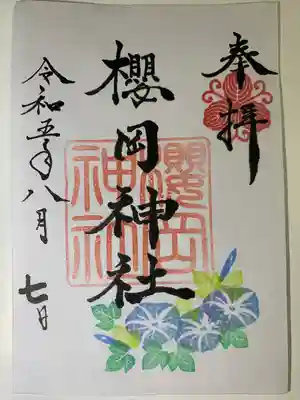 奉拝
櫻岡神社
櫻岡神社
令和五年八月七日